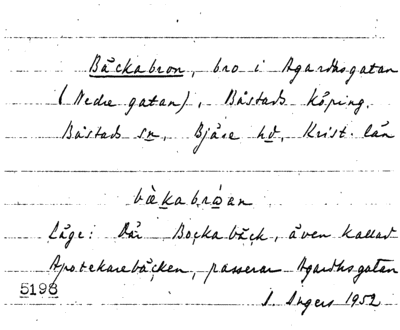 Bäckabron, bro i Agardhsgatan
(Nedre gatan), Båstads köping.
Båstads sn, Bjäre hd, Krist. län
bækabròan
Läge: Där Bockabäck, även kallad
Apotekarebäcken, passerar Agardhsgatan
5198
J. Ingers 1952